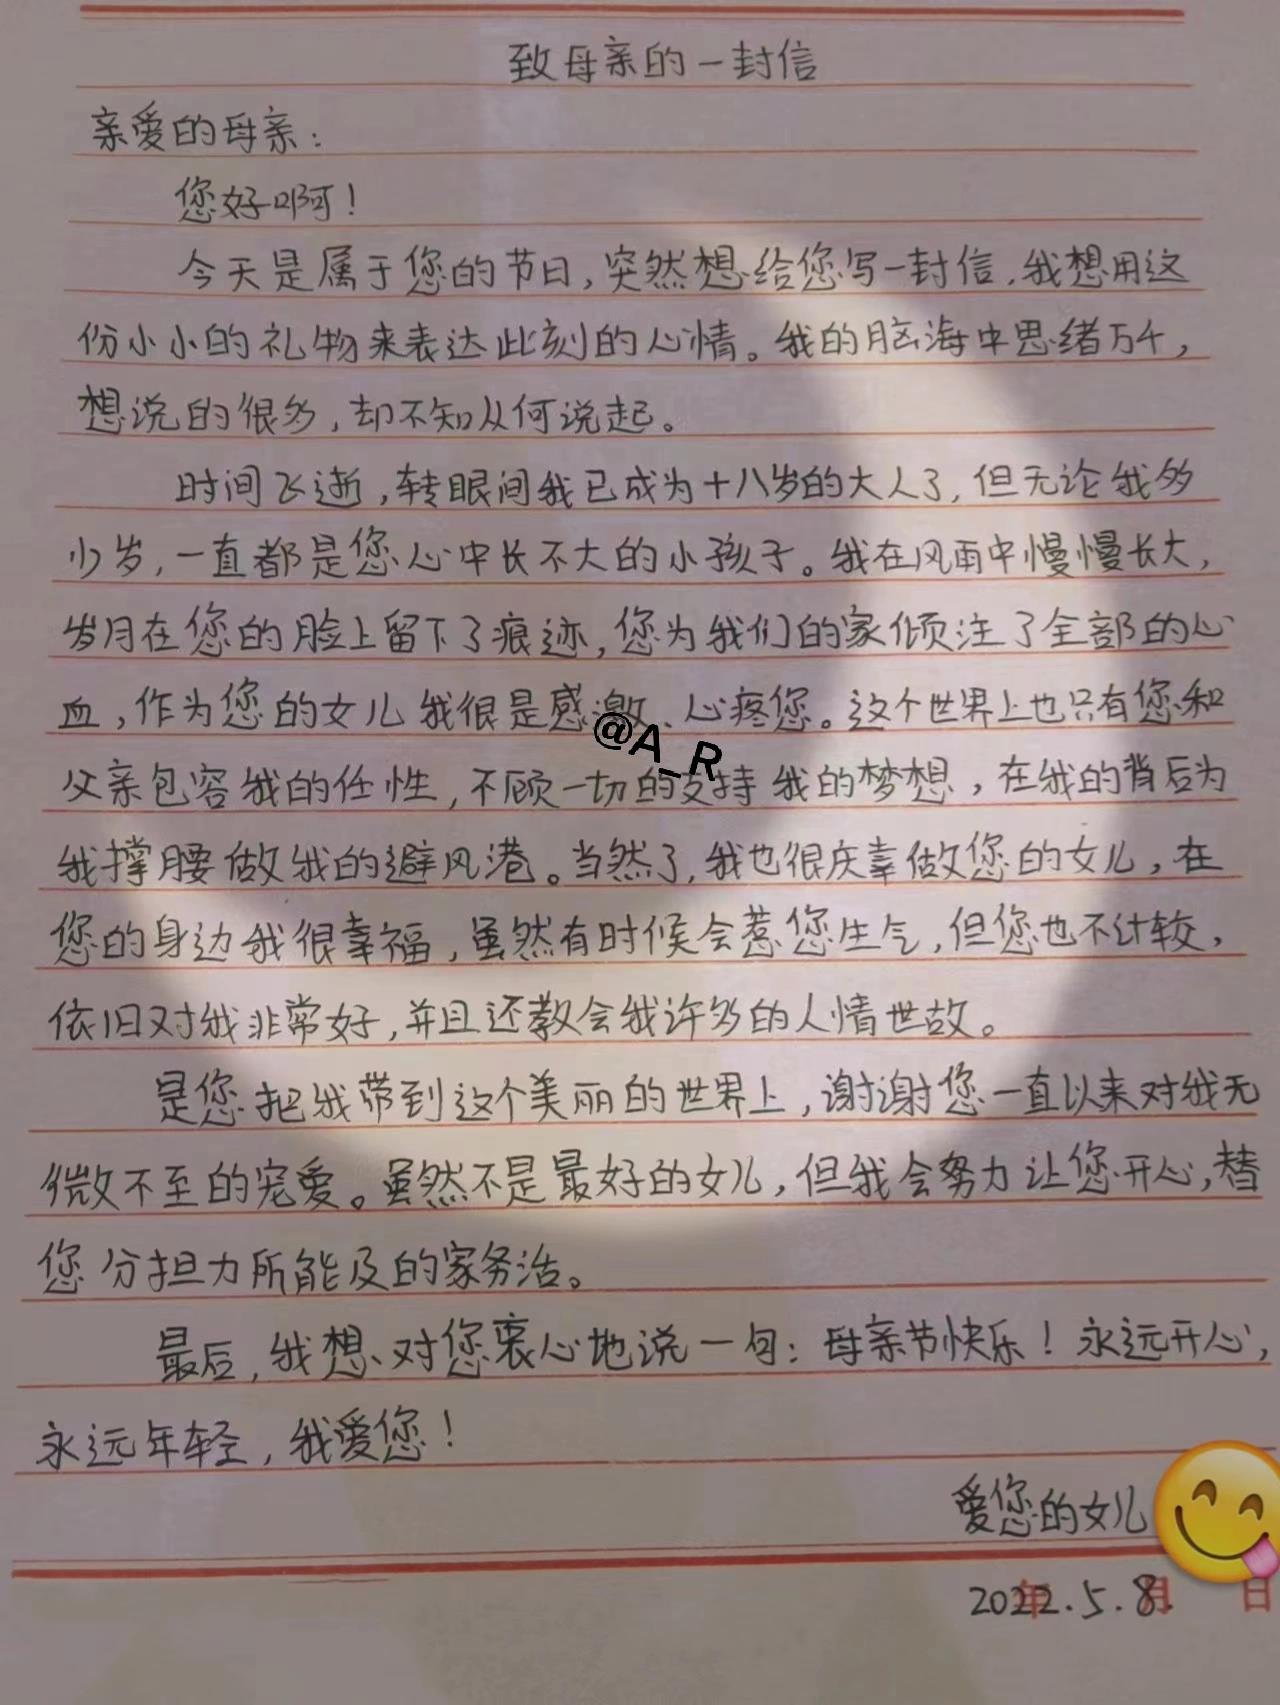 致母亲的一封信
亲爱的母亲：
您好啊！
今天是属于您的节日，突然想给您写一封信，我想用这
份小小的礼物来表达此刻的心情。我的脑海中思绪万千，
想说的很多，却不知从何说起。
时间飞逝，转眼间我已成为十八岁的大人了，但无论我多
少岁，一直都是您心中长不大的小孩子。我在风雨中慢慢长大，
岁月在您的脸上留下了痕迹，您为我们的家倾注了全部的心
血，作为您的女儿我很是感激、心疼您。这个世界上也只有您和
@A_R
父亲包容我的任性，不顾一切的支持我的梦想，在我的背后为
我撑腰做我的避风港。当然了，我也很庆幸做您的女儿，在
您的身边我很幸福，虽然有时候会惹您生气，但您也不计较，
依旧对我非常好，并且还教会我许多的人情世故。
是您把我带到这个美丽的世界上，谢谢您一直以来对我无
微不至的宠爱。虽然不是最好的女儿，但我会努力让您开心，替
您分担力所能及的家务活。
最后，我想对您衷心地说一句：母亲节快乐！永远开心，
永远年轻，我爱您！
爱您的女儿
2022.5.8.
年 月 日